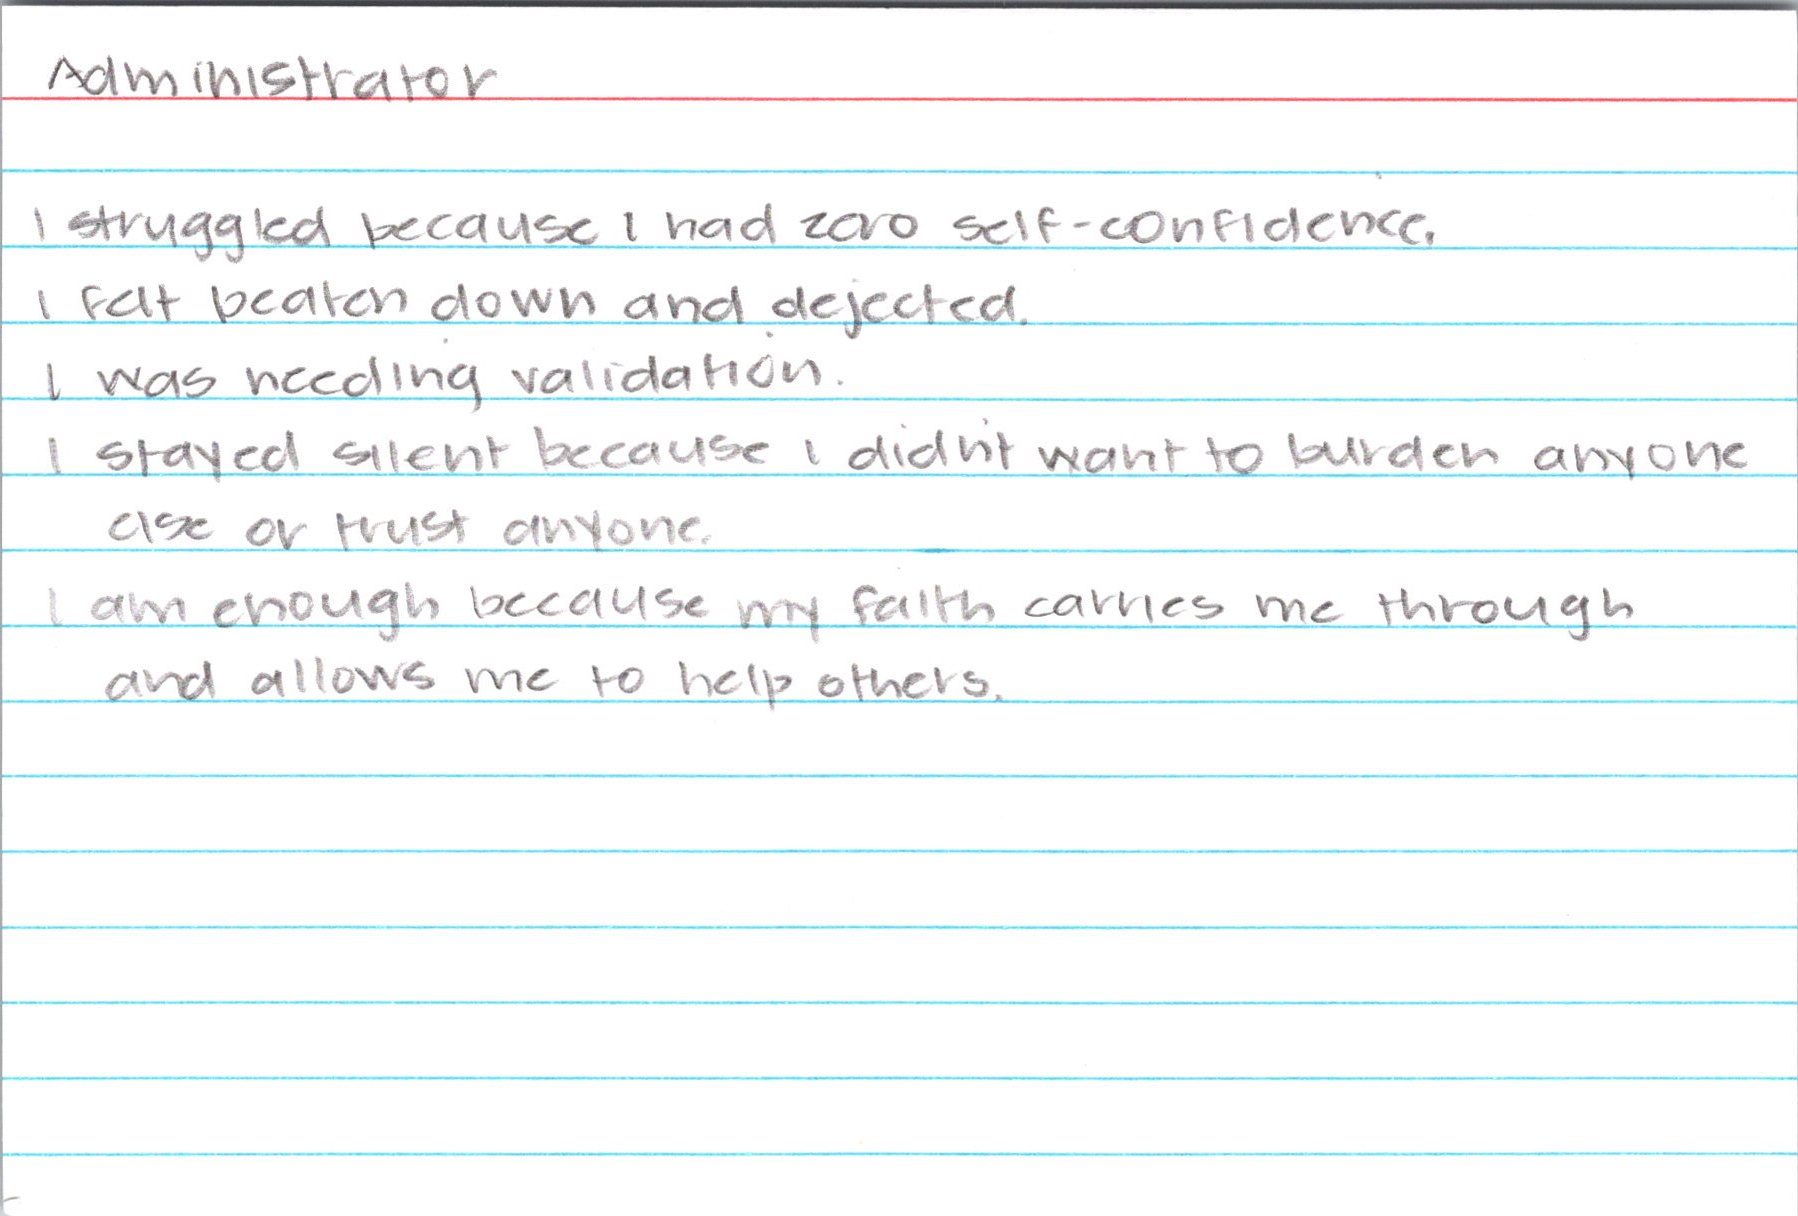 Administrator
I struggled because I had zero self-confidence.
I felt beaten down and dejected.
I was needing validation.
I stayed silent because I didn't want to burden anyone
else or trust anyone.
I am enough because my faith carries me through
and allows me to help others.